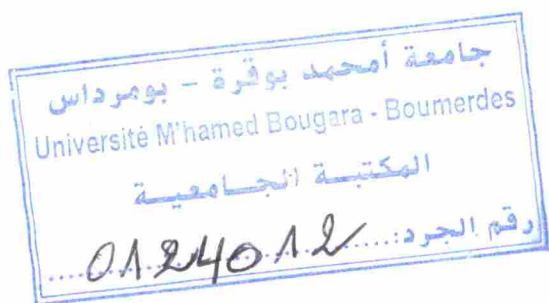 جامعة أمحمد بوقرة - بومرداس
Université M'hamed Bougara - Boumerdes
المكتبة الجامعية
رقم الجرد: 0124012